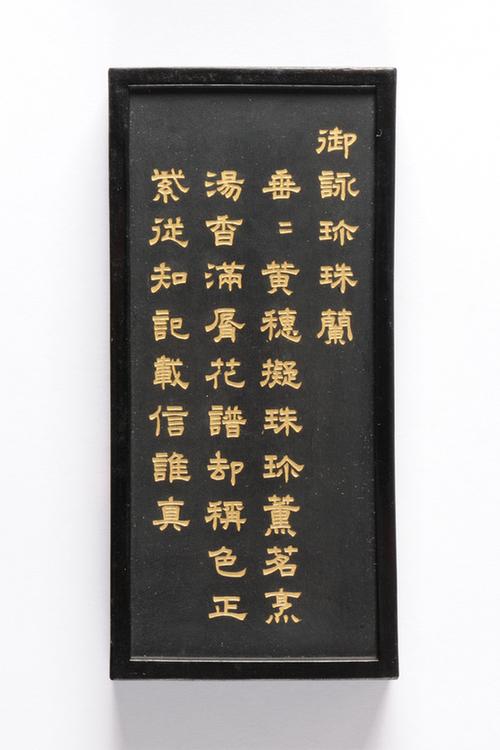 御詠珎珠蘭
垂〻黄穗擬珠珎薰茗烹
湯香滿脣花譜却稱色正
紫従知記載信誰真